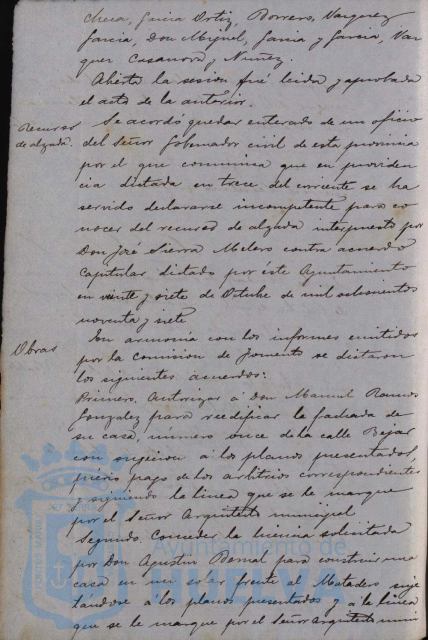 Checa, Garcia Ortiz, Borrero, Vazquez
Garcia, Don Miguel, Garcia y Garcia, Vaz
quez Casanova y Nuñez.
Abierta la sesion fué leida y aprobada
el acta de la anterior.
Recurso
de alzada.
Se acordó quedar enterado de un oficio
del Señor Gobernador civil de esta provincia
por el que comunica que en providen
cia dictada en trece del corriente se ha
servido declararse incompetente para co
nocer del recurso de alzada interpuesto por
Don José Sierra Melero contra acuerdo
Capitular dictado por éste Ayuntamiento
en veinte y siete de Octubre de mil ochocientos
noventa y siete.
Obras
En armonia con los informes emitidos
por la Comision de Fomento se dictaron
los siguientes acuerdos:
Primero. Autorizar á Don Manuel Ramos
Gonzalez para reedificar la fachada de
su casa, número once de la calle Bejar
con sujecion á los planos presentados,
prévio pago de los arbitrios correspondientes
y siguiendo la linea que se le marque
por el Señor Arquitecto municipal
Segundo. Conceder la licencia solicitada
por Don Agustin Bernal para construir una
casa en un solar frente al Matadero suje
tándose á los planos presentados y á la linea
que se le marque por el Señor Arquitecto muni
Ayuntamiento de
HUELVA